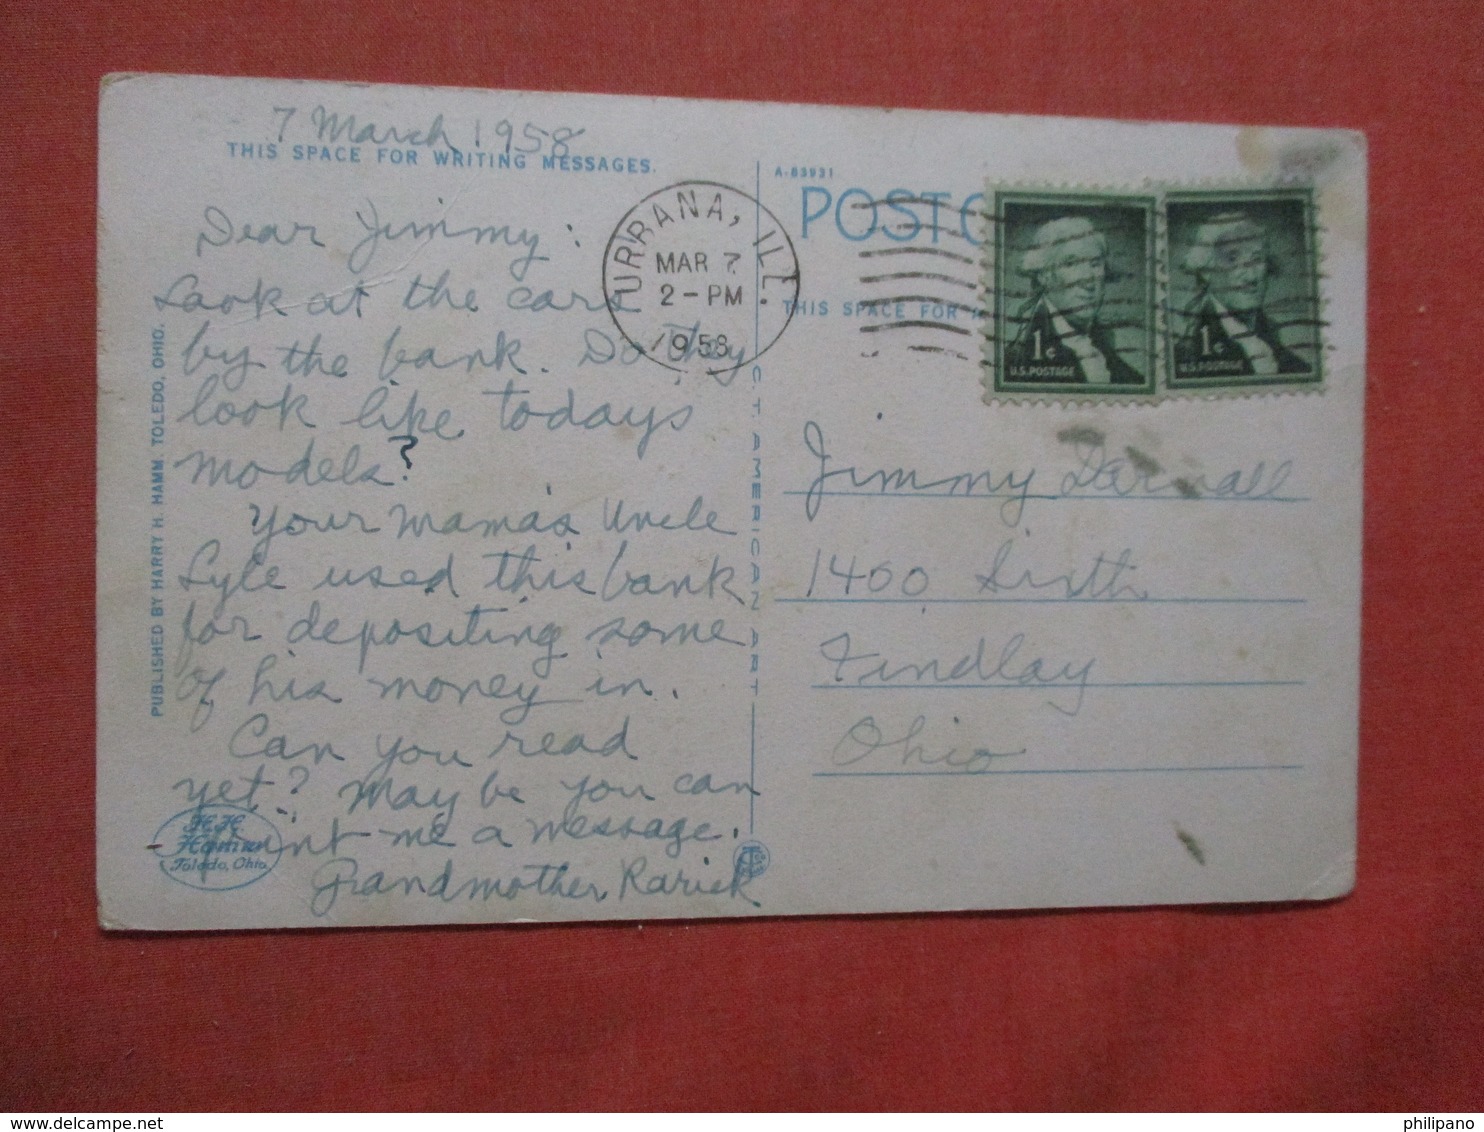 7 March 1958
THIS SPACE FOR WRITING MESSAGES.
Dear Jimmy:
Look at the cars
by the bank. Do they
look like todays
models?
Your mama's Uncle
Lyle used this bank
for depositing some
of his money in.
Can you read
yet? May be you can
print me a message.
Grandmother Rarick
PUBLISHED BY HARRY H. HAMM. TOLEDO, OHIO.
H. H.
Hamm
Toledo, Ohio
URBANA, ILL.
MAR 7
2-PM
1958
A-83931
POSTC
THIS SPACE FOR A
C.T. AMERICAN ART
1¢
U.S. POSTAGE
1¢
U.S. POSTAGE
Jimmy Darnall
1400 Sixth
Findlay
Ohio
philipano
delcampe.net